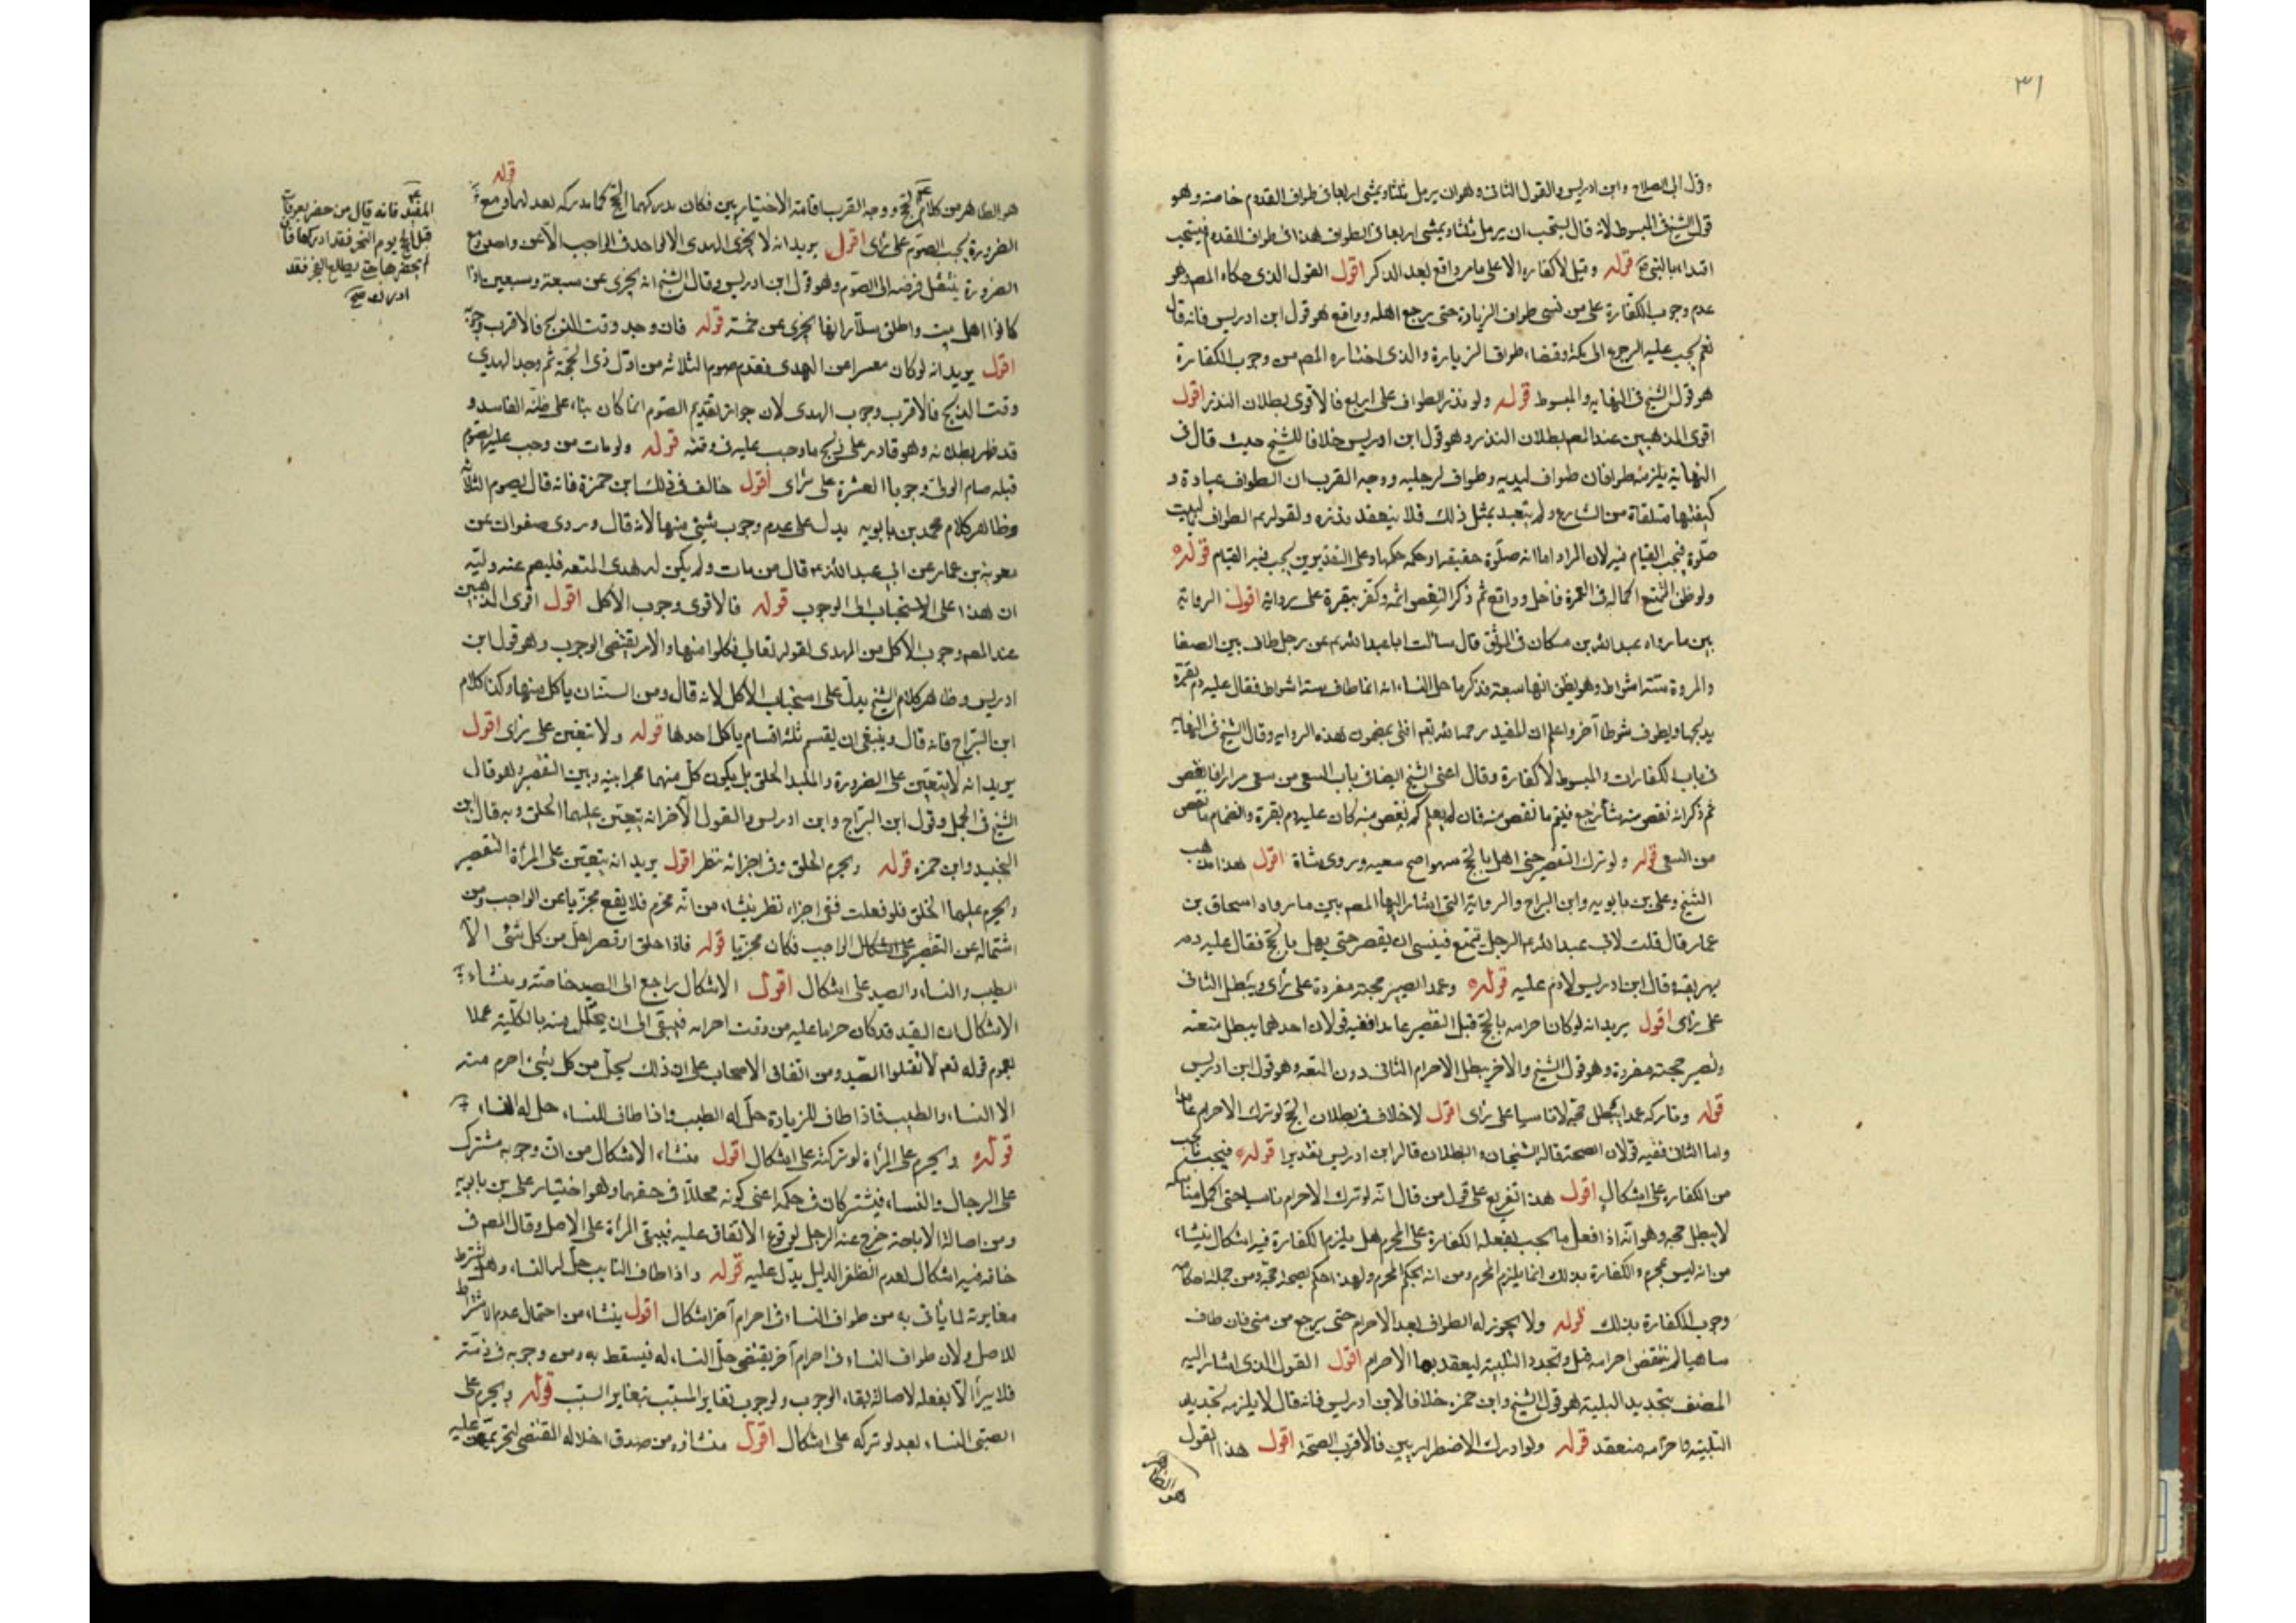 ٣١
وقول ابى الصلاح وابن ادريس والقول الثانى وهو ان يرمل ثلثا ويمشى اربعا فى طواف القدوم خاصة وهو
قول الشيخ فى المبسوط لانه قال يستحب ان يرمل ثلثا ويمشى اربعا فى الطواف هذا فى طواف القدوم فيستحب
اقتداء بالنبى قوله وقيل لا كفارة الا على من واقع بعد الذكر اقول القول الذى حكاه المصـ هو
عدم وجوب الكفارة على من نسى طواف الزيارة حتى يرجع اهله وواقع هو قول ابن ادريس فانه قال
نعم يجب عليه الرجوع الى مكة وقضاء طواف الزيارة والذى اختاره المصـ من وجوب الكفارة
هو قول الشيخ فى النهاية والمبسوط قوله ولو نذر الطواف على اربع فالاقوى بطلان النذر اقول
اقوى المذهبين عند المصـ بطلان النذر وهو قول ابن ادريس خلافا للشيخ حيث قال فى
النهاية يلزمه طوافان طواف ليديه وطواف لرجليه ووجه القرب ان الطواف عبادة و
كيفيتها متلقاة من الشارع ولم يتعبد بمثل ذلك فلا ينعقد نذره ولقوله الطواف بالبيت
صلوة فيجب القيام فيه لان المراد اما انه صلوة حقيقة او حكمه حكمها وعلى التقديرين يجب فيه القيام قوله
ولو ظن المتمتع اكماله فى العمرة فاحل وواقع ثم ذكر النقص اتمه وكفر ببقرة على رواية اقول الرواية
بين ما رواه عبد الله بن مسكان فى الموثق قال سالت ابا عبد الله عن رجل طاف بين الصفا
والمروة ستة اشواط وهو يظن انها سبعة فذكر بعد ما حل النساء انه انما طاف ستة اشواط فقال عليه دم بقرة
يذبحها ويطوف شوطا آخر واعلم ان المفيد رحمه الله افتى بمضمون هذه الرواية وقال الشيخ فى النهاية
فى باب الكفارات والمبسوط لا كفارة وقال اعنى الشيخ ايضا فى باب السعى من سعى مرارا فانقص
ثم ذكر انه نقص منه شيئا رجع فيتم ما نقص منه فان لم يعلم كم نقص منه كان عليه دم بقرة واتمام ما نقص
من السعى قوله ولو ترك التقصير حتى اهل بالحج سهوا صح سعيه وروى شاة اقول هذا مذهب
الشيخ وعلى بن بابويه وابن البراج والرواية التى اشار اليها المصـ هى ما رواه اسحاق بن
عمار قال قلت لابى عبد الله الرجل يتمتع فينسى ان يقصر حتى يهل بالحج فقال عليه دم
يهريقه قال ابن ادريس لا دم عليه قوله وعمد الصير حجته مفردة على رأى ويبطل الثانى
على رأى اقول يريد انه لو كان احرامه بالحج قبل التقصير عامدا ففيه قولان احدهما يبطل متعته
وتصير حجته مفردة وهو قول الشيخ والاخر يبطل الاحرام الثانى دون المتعة وهو قول ابن ادريس
قوله وتاركه عمدا يبطل حجه لا ناسيا على رأى اقول لا خلاف فى بطلان الحج لو ترك الاحرام عامدا
واما الثانى ففيه قولان الصحة قاله الشيخان والبطلان قاله ابن ادريس تقديرا قوله فيجب ما يجب
من الكفارة على اشكال اقول هذا تفريع على قول من قال انه لو ترك الاحرام ناسيا حتى اكمل مناسكه
لا يبطل حجه وهو انه اذا فعل ما يجب بفعله الكفارة على المحرم هل يلزم الكفارة فيه اشكال ينشاء
من انه ليس بمحرم والكفارة بذلك انما يلزم المحرم ومن انه بحكم المحرم ولهذا حكم بصحة حجه ومن جملة احكامه
وجوب الكفارة بذلك قوله ولا يجوز له الطواف بعد الاحرام حتى يرجع من منى فان طاف
ساهيا لم ينتقض احرامه قيل ويجدد التلبية ليعقد بها الاحرام اقول القول الذى اشار اليه
المصنف بتجديد التلبية هو قول الشيخ وابن حمزه خلافا لابن ادريس فانه قال لا يلزمه تجديد
التلبية واحرامه منعقد قوله ولو ادرك الاضطراريين فالاقرب الصحة اقول هذا القول
هو الظاهر
قوله
هو الظاهر من كلام ووجه القرب اقامة الاختياريين فكان يدركهما الحج كما يدركه بعد لهما ومع
الضرورة يجب الصوم على رأى اقول يريد انه لا يجزى الهدى الا الواحد فى الواجب الا عن واحد ومع
الضرورة ينتقل فرضه الى الصوم وهو قول ابن ادريس وقال الشيخ انه يجزى عن سبعة وسبعين اذا
كانوا اهل بيت واطلق سلار انها يجزى عن خمسة قوله فان وجد وقت الذبح فالاقرب
اقول يريد انه لو كان معسرا عن الهدى فقدم صوم الثلاثة من اول ذى الحجة ثم وجد الهدى
وقت الذبح فالاقرب وجوب الهدى لان جواز تقديم الصوم انما كان بناء على ظنه الفاسد و
قد ظهر بطلانه وهو قادر على ذبح ما وجب عليه فى وقته قوله ولو مات من وجب عليه الصوم
قبله صام الولى وجوبا العشرة على رأى اقول خالف فى ذلك ابن حمزة فانه قال يصوم الثلاثة
وظاهر كلام محمد بن بابويه يدل على عدم وجوب شيئ منها لانه قال وروى صفوان عن
معوية بن عمار عن ابى عبد الله قال من مات ولم يكن له هدى المتعة فليصم عنه وليه
ان هذا على الاستحباب لا الوجوب قوله فالاقوى وجوب الاكل اقول اقوى المذهبين
عند المصـ وجوب الاكل من الهدى لقوله تعالى فكلوا منها والامر يقتضى الوجوب وهو قول ابن
ادريس وظاهر كلام الشيخ يدل على استحباب الاكل لانه قال ومن السنة ان ياكل منها وكذا كلام
ابن البراج فانه قال وينبغى ان يقسم ثلثة اقسام ياكل احدها قوله ولا تتعين على رأى اقول
يريد انه لا يتعين على الضرورة والملبد الحلق بل يكون كل منهما مخيرا بينه وبين التقصير وهو قال
الشيخ فى الجمل وقول ابن البراج وابن ادريس والقول الآخر انه يتعين عليهما الحلق وبه قال ابن
الجنيد وابن حمزه قوله ويحرم الحلق وفى اجزائه نظر اقول يريد انه يتعين على المرأة التقصير
ويحرم عليها الحلق فلو فعلت ففى اجزاء نظر ينشاء من انه محرم فلا يقع مجزيا عن الواجب ومن
اشتماله عن التقصير على اشكال الواجب فكان مجزيا قوله فاذا حلق او قصر احل من كل شئ الا
الطيب والنساء والصيد على اشكال اقول الاشكال راجع الى الصيد خاصة ومنشاء
الاشكال ان الصيد قد كان حراما عليه من وقت احرامه فيبقى الى ان يتحلل منه بالكلية عملا
بعموم قوله تعم لا تقتلوا الصيد ومن اتفاق الاصحاب على ان ذلك يحل من كل شيئ احرم منه
الا النساء والطيب فاذا طاف للزيارة حل له الطيب واذا طاف للنساء حل له النساء
قوله ويحرم على المرأة لو تركته على اشكال اقول منشاء الاشكال من ان وجوبه مشترك
على الرجال والنساء فيشتركان فى حكمه اعنى كونه محللا فى حقهما وهو اختيار على بن بابويه
ومن اصالة الاباحة خرج عنه الرجل لوقوع الاتفاق عليه فيبقى المرأة على الاصل وقال المصـ فى
خلافه فيه اشكال لعدم الظفر الدليل يدل عليه قوله واذا طاف النائب حل له النساء وهل يشترط
مغايرته لما يأتى به من طواف النساء فى احرام آخر اشكال اقول ينشاء من احتمال عدم الاشتراط
للاصل ولان طواف النساء فى احرام آخر يقتضى حل النساء له فيسقط به ومن وجوبه فى ذمته
فلا يبرأ الا بفعله لاصالة بقاء الوجوب ولوجوب تغاير المسبب بتغاير السبب قوله ويحرم على
الصبى النساء بعد لو تركه على اشكال اقول منشاؤه من صدق اخلاله المقتضى لتحريمهن عليه
المفيد فانه قال من حضر بعرفات
قبل الفجر يوم النحر فقد ادركها فان
لم يحضرها حتى يطلع الفجر فقد